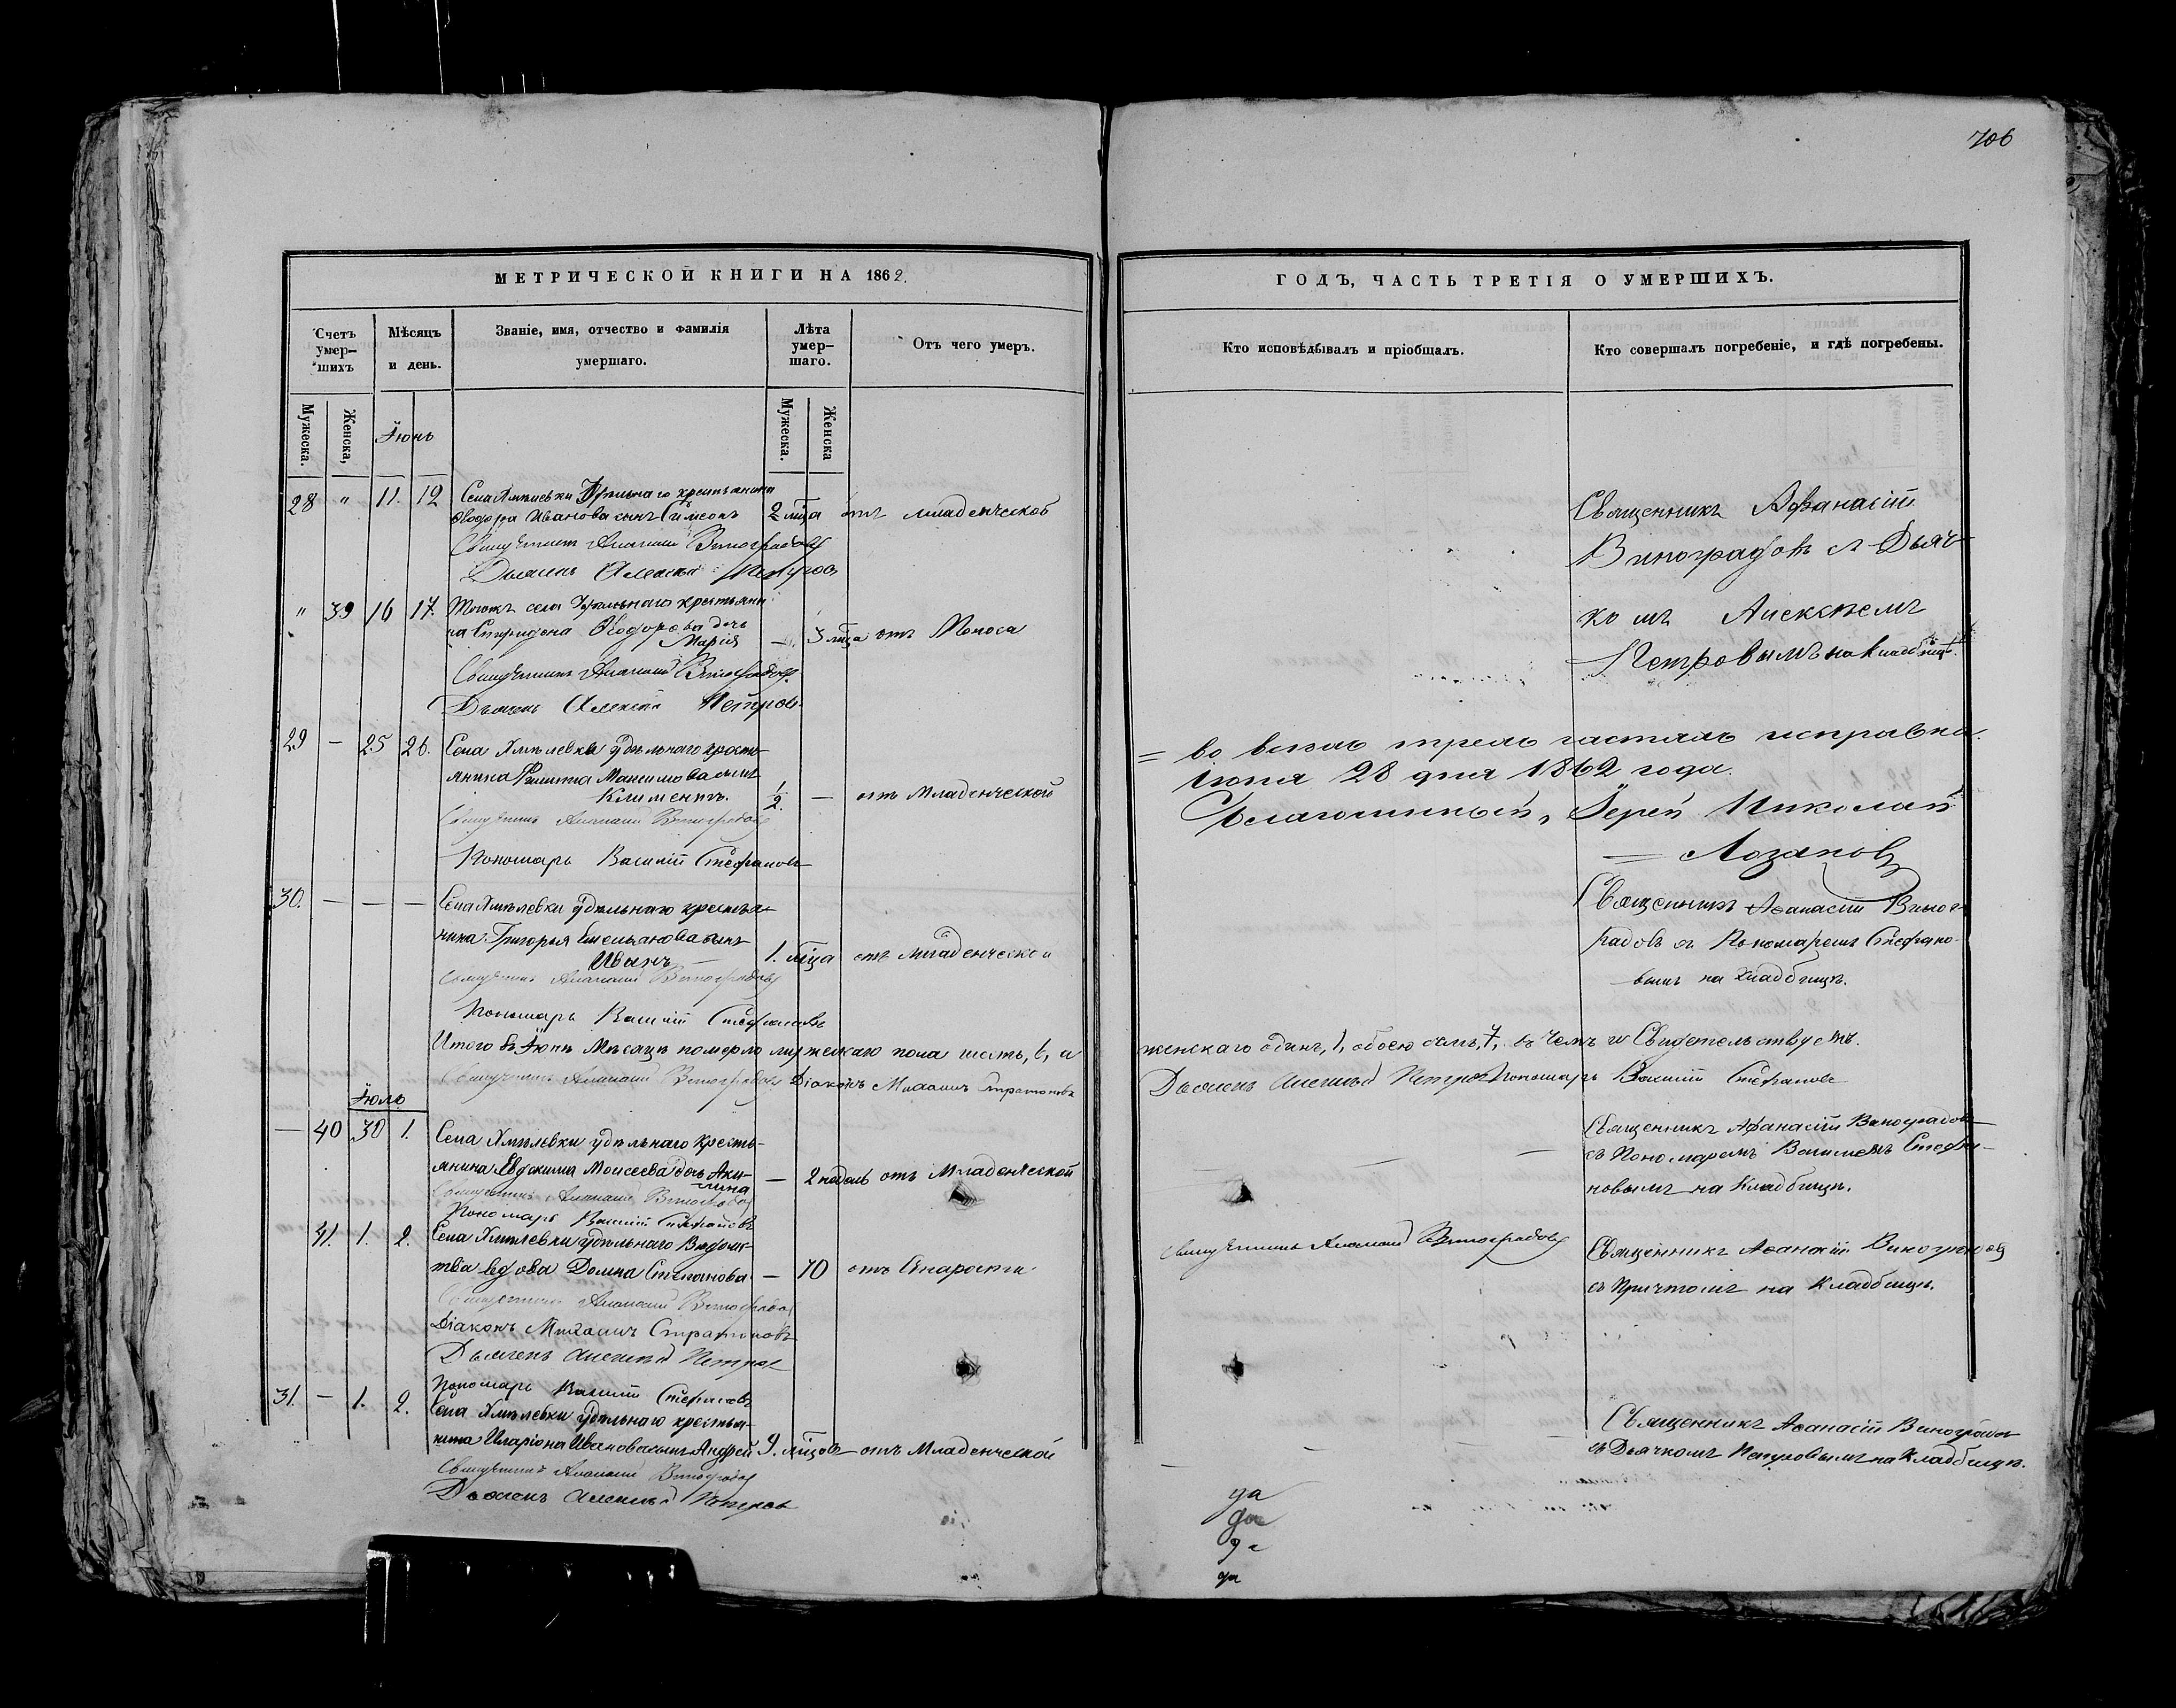 706
МЕТРИЧЕСКОЙ КНИГИ НА 1862.
Счетъ умер-шихъ
Мѣсяцъ и день.
Званіе, имя, отчество и фамилія умершаго.
Лѣта умер-шаго.
Отъ чего умеръ.
Мужеска.
Женска,
Іюнь
Мужеска.
Женска
28 " 11. 12 Села Хмѣлевки Удѣльнаго крестьянина
Ѳеодора Иванова сынъ Симеонъ 2 мѣца отъ младенческой
Священникъ Афанасій Виноградовъ
Дьячекъ Алексѣй Петровъ
" 39 16 17. Тогожъ села Удѣльнаго крестьяни
на Спиридона Ѳеодорова дочь
Марія — 3 мѣца отъ Поноса
Священникъ Афанасій Виноградовъ
Дьячекъ Алексѣй Петровъ
29 — 25 26. Села Хмѣлевки удѣльнаго кресть-
янина Филиппа Максимова сынъ
Климентъ. 1/2. — отъ Младенческой
Священникъ Афанасій Виноградовъ
Пономарь Василій Стефановъ
30. — — — Села Хмѣлевки удѣльнаго крестья-
нина Григорья Емельянова сынъ
Иванъ — 1. мѣца отъ младенческой
Священникъ Афанасій Виноградовъ
Пономарь Василій Стефановъ
Итого въ Іюнѣ Мѣсяцѣ померло мужескаго пола шесть, 6, а
Священникъ Афанасій Виноградовъ Діаконъ Михаилъ Стратоновъ
Іюль
— 40 30 1. Села Хмѣлевки удѣльнаго кресть-
янина Евдокима Моисеева дочь Аки-
лина — 2 недѣль отъ Младенческой
Священникъ Афанасій Виноградовъ
Пономарь Василій Стефановъ
41. 1. 2. Села Хмѣлевки удѣльнаго Вѣдомс-
тва вдова Домна Степанова — 70 отъ Старости
Священникъ Афанасій Виноградовъ
Діаконъ Михаилъ Стратоновъ
Дьячекъ Алексѣй Петровъ
Пономарь Василій Стефановъ
31. — 1. 2. Села Хмѣлевки удѣльнаго крестья-
нина Иларіона Иванова сынъ Андрей 9. мѣцовъ — отъ Младенческой
Священникъ Афанасій Виноградовъ
Дьячекъ Алексѣй Петровъ
ГОДЪ, ЧАСТЬ ТРЕТІЯ О УМЕРШИХЪ.
Кто исповѣдывалъ и пріобщалъ.
Кто совершалъ погребеніе, и гдѣ погребены.
Священникъ Афанасій
Виноградовъ съ Дьяч-
комъ Алексѣемъ
Петровымъ на кладбищѣ.
= во всѣхъ трехъ частяхъ исправна.
Іюня 28 дня 1862 года.
Благочинный, Іерей Николай
Лозановъ
Священникъ Аѳанасій Виног-
радовъ съ Пономаремъ Стефано-
вымъ на Кладбищѣ.
женскаго одинъ, 1, обоего семь, 7, въ чемъ и Свидетельствуемъ.
Дьячекъ Алексѣй Петровъ Пономарь Василій Стефановъ
Священникъ Афанасій Виноградовъ
съ Пономаремъ Василіемъ Стефа-
новымъ на Кладбищѣ.
Священникъ Афанасій Виноградовъ
Священникъ Аѳанасій Виноградовъ
съ Причтомъ на Кладбищѣ.
Священникъ Аѳанасій Виноградовъ
съ Дьячкомъ Петровымъ на Кладбищѣ.
да
да
да
да